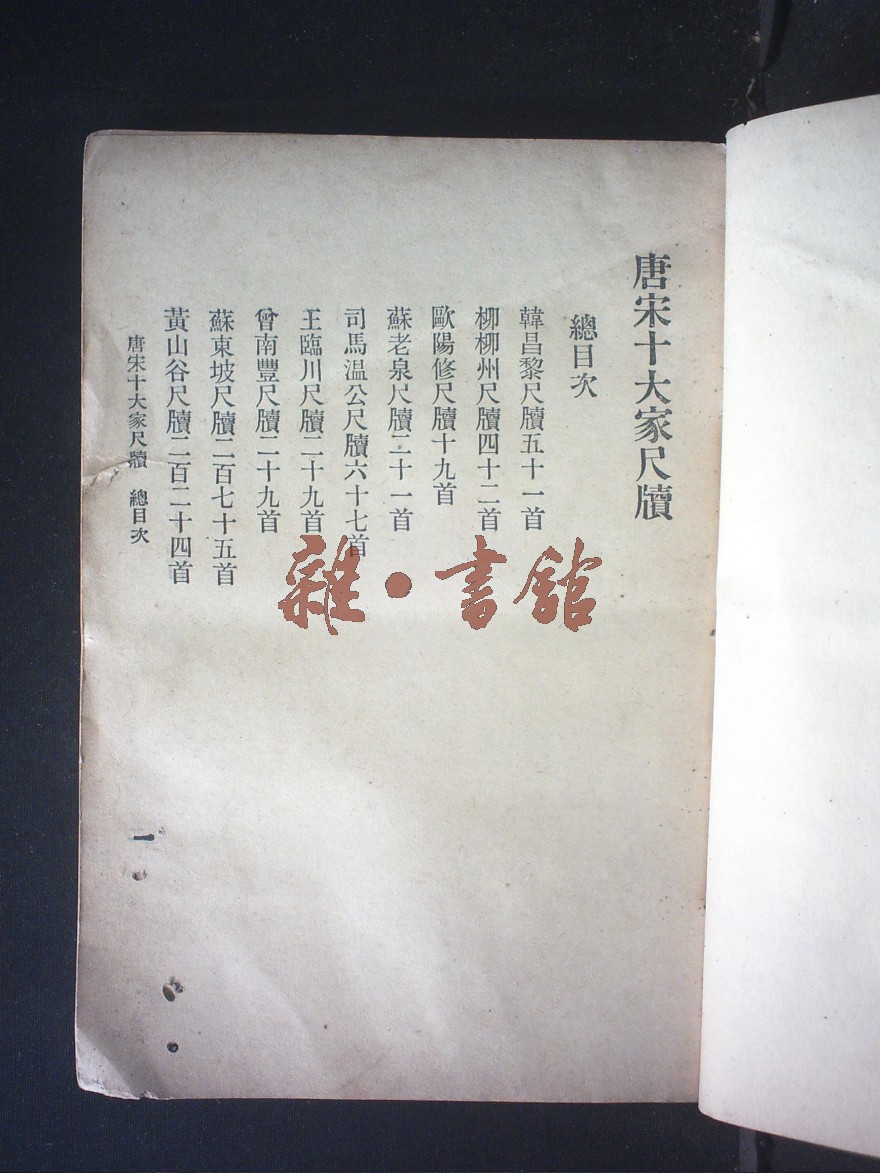 唐宋十大家尺牘
總目次
韓昌黎尺牘五十一首
柳柳州尺牘四十二首
歐陽修尺牘十九首
蘇老泉尺牘二十一首
司馬溫公尺牘六十七首
王臨川尺牘二十九首
曾南豐尺牘二十九首
蘇東坡尺牘二百七十五首
黃山谷尺牘二百二十四首
唐宋十大家尺牘 總目次
一
雜•書館